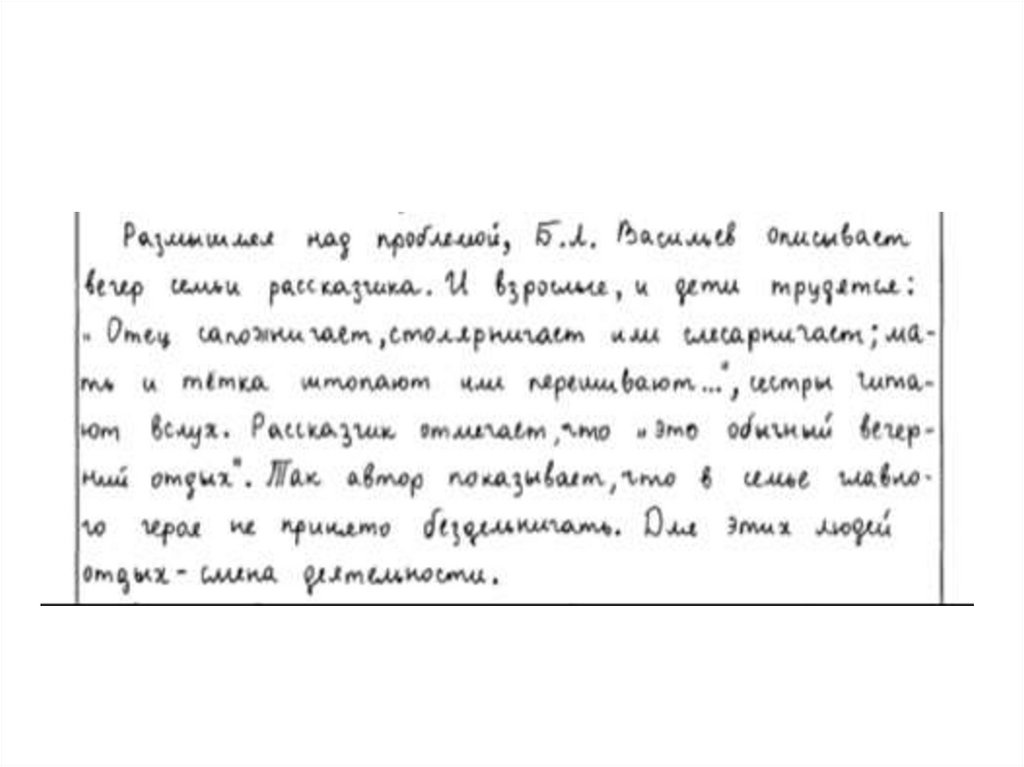 Размышляя над проблемой, Б.Л. Васильев описывает
вечер семьи рассказчика. И взрослые, и дети трудятся:
„Отец сапожничает, столярничает или слесарничает; ма-
ть и тётка штопают или перешивают...", сестры чита-
ют вслух. Рассказчик отмечает, что „это обычный вечер-
ний отдых". Так автор показывает, что в семье главно-
го героя не принято бездельничать. Для этих людей
отдых - смена деятельности.